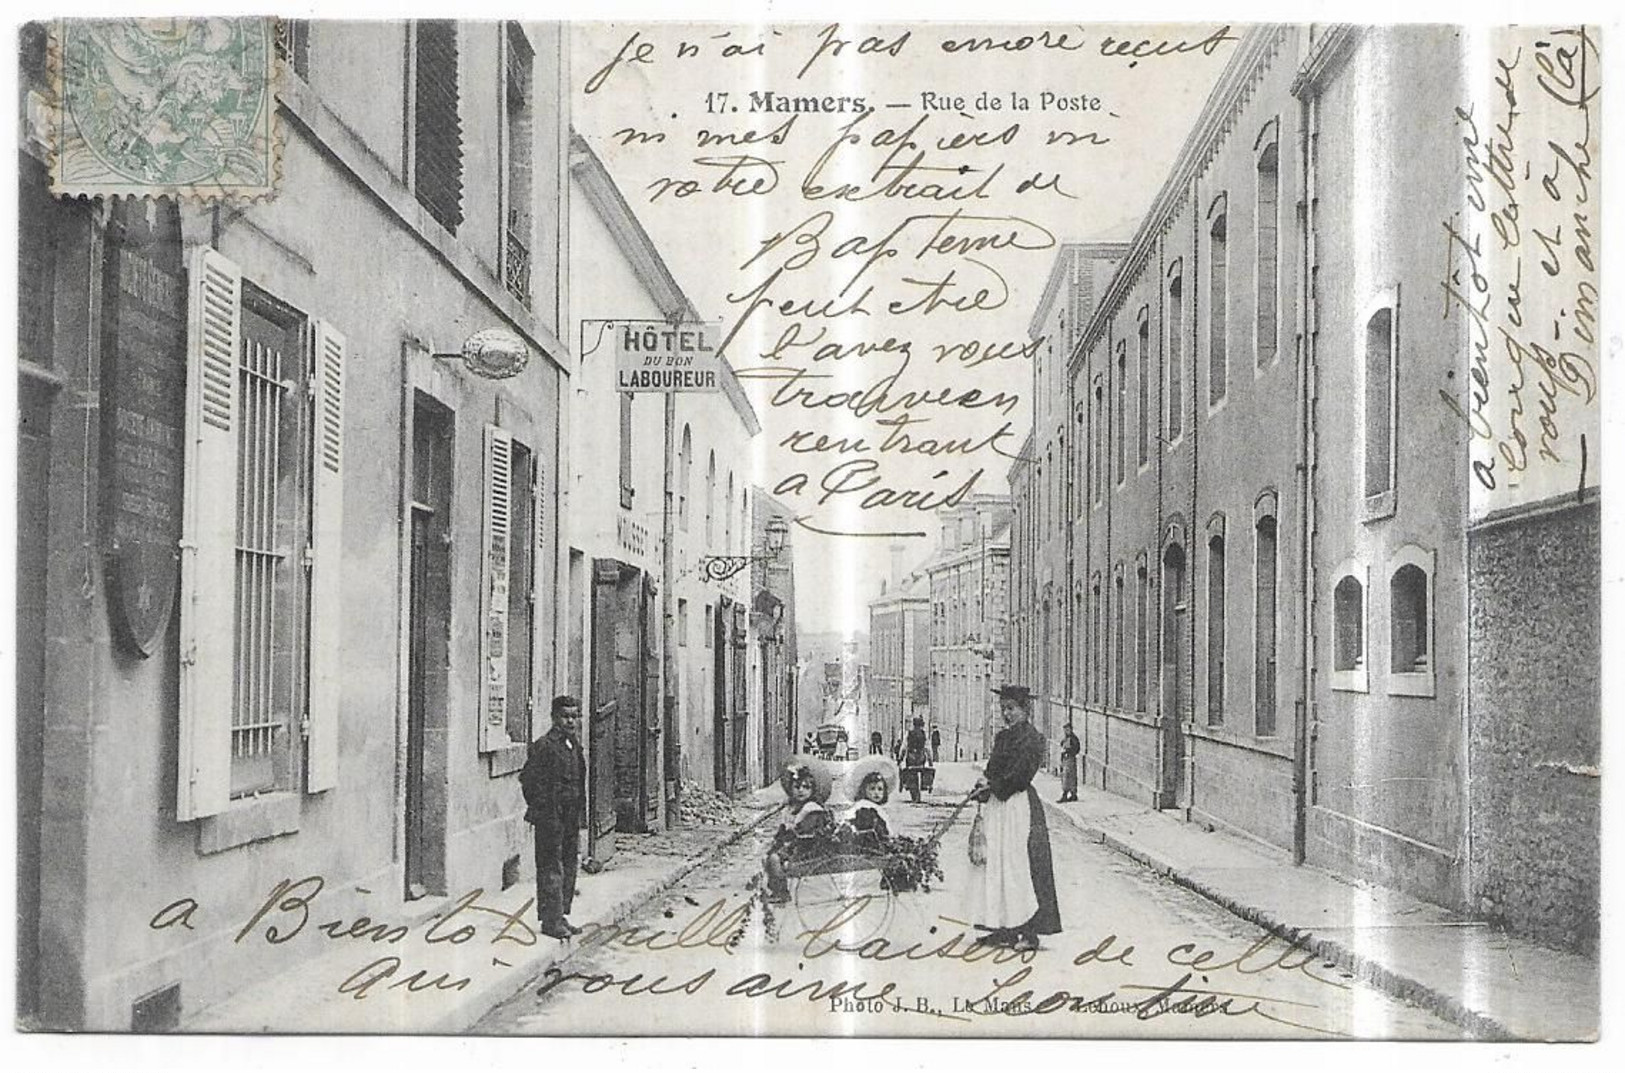 je n'ai pas encore reçut
17. Mamers. — Rue de la Poste
ni mes papiers ni
votre extrait de
Bapteme
peut etre
l'avez vous
trouver en
rentrant
a Paris
HÔTEL
DU BON
LABOUREUR
a bientôt une
longue lettre de
vous - et a
Dimanche (la)
a Bientot mille baisers de celle
qui vous aime
Photo J. B., Le Mans
Lehoux, Mamers